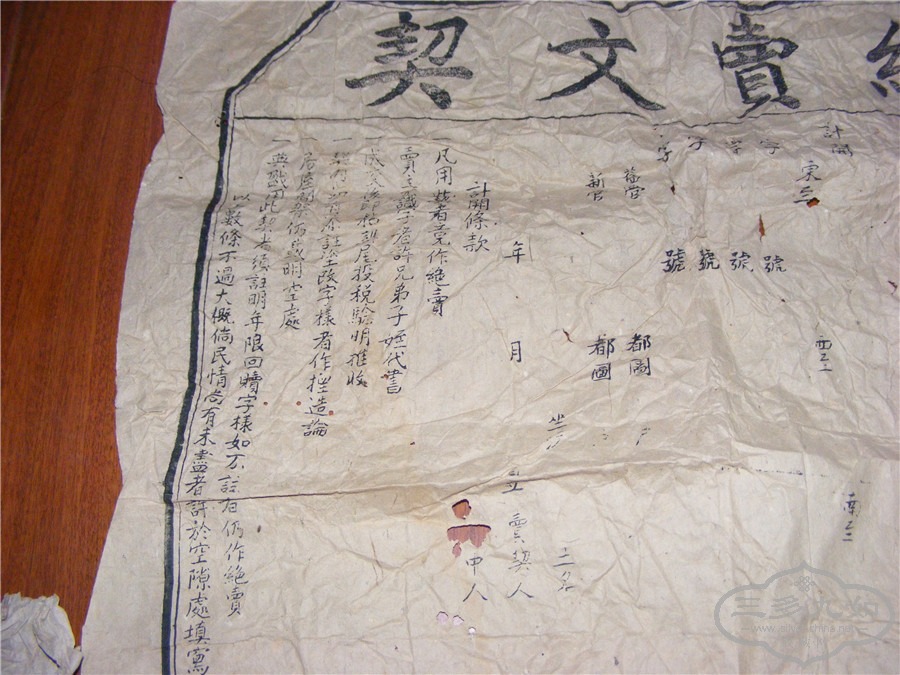 賣文契
計開
東至 西至 南至
字 號
字 號
字 號
字 號
舊管 都圖 戶
新管 都圖
坐落 土名
年 月 立賣契人
中人
計開條款
一凡用此契者竟作絕賣
一賣主識字者許兄弟子姪代書
一成交後即粘契尾投稅驗明推收
一契內如有添註塗改字樣者作捏造論
一房屋間架仍載明空處
一典戤用此契者須註明年限回贖字樣如不註者仍作絕賣
以數條不過大概倘民情尚有未盡者許於空隙處填寫